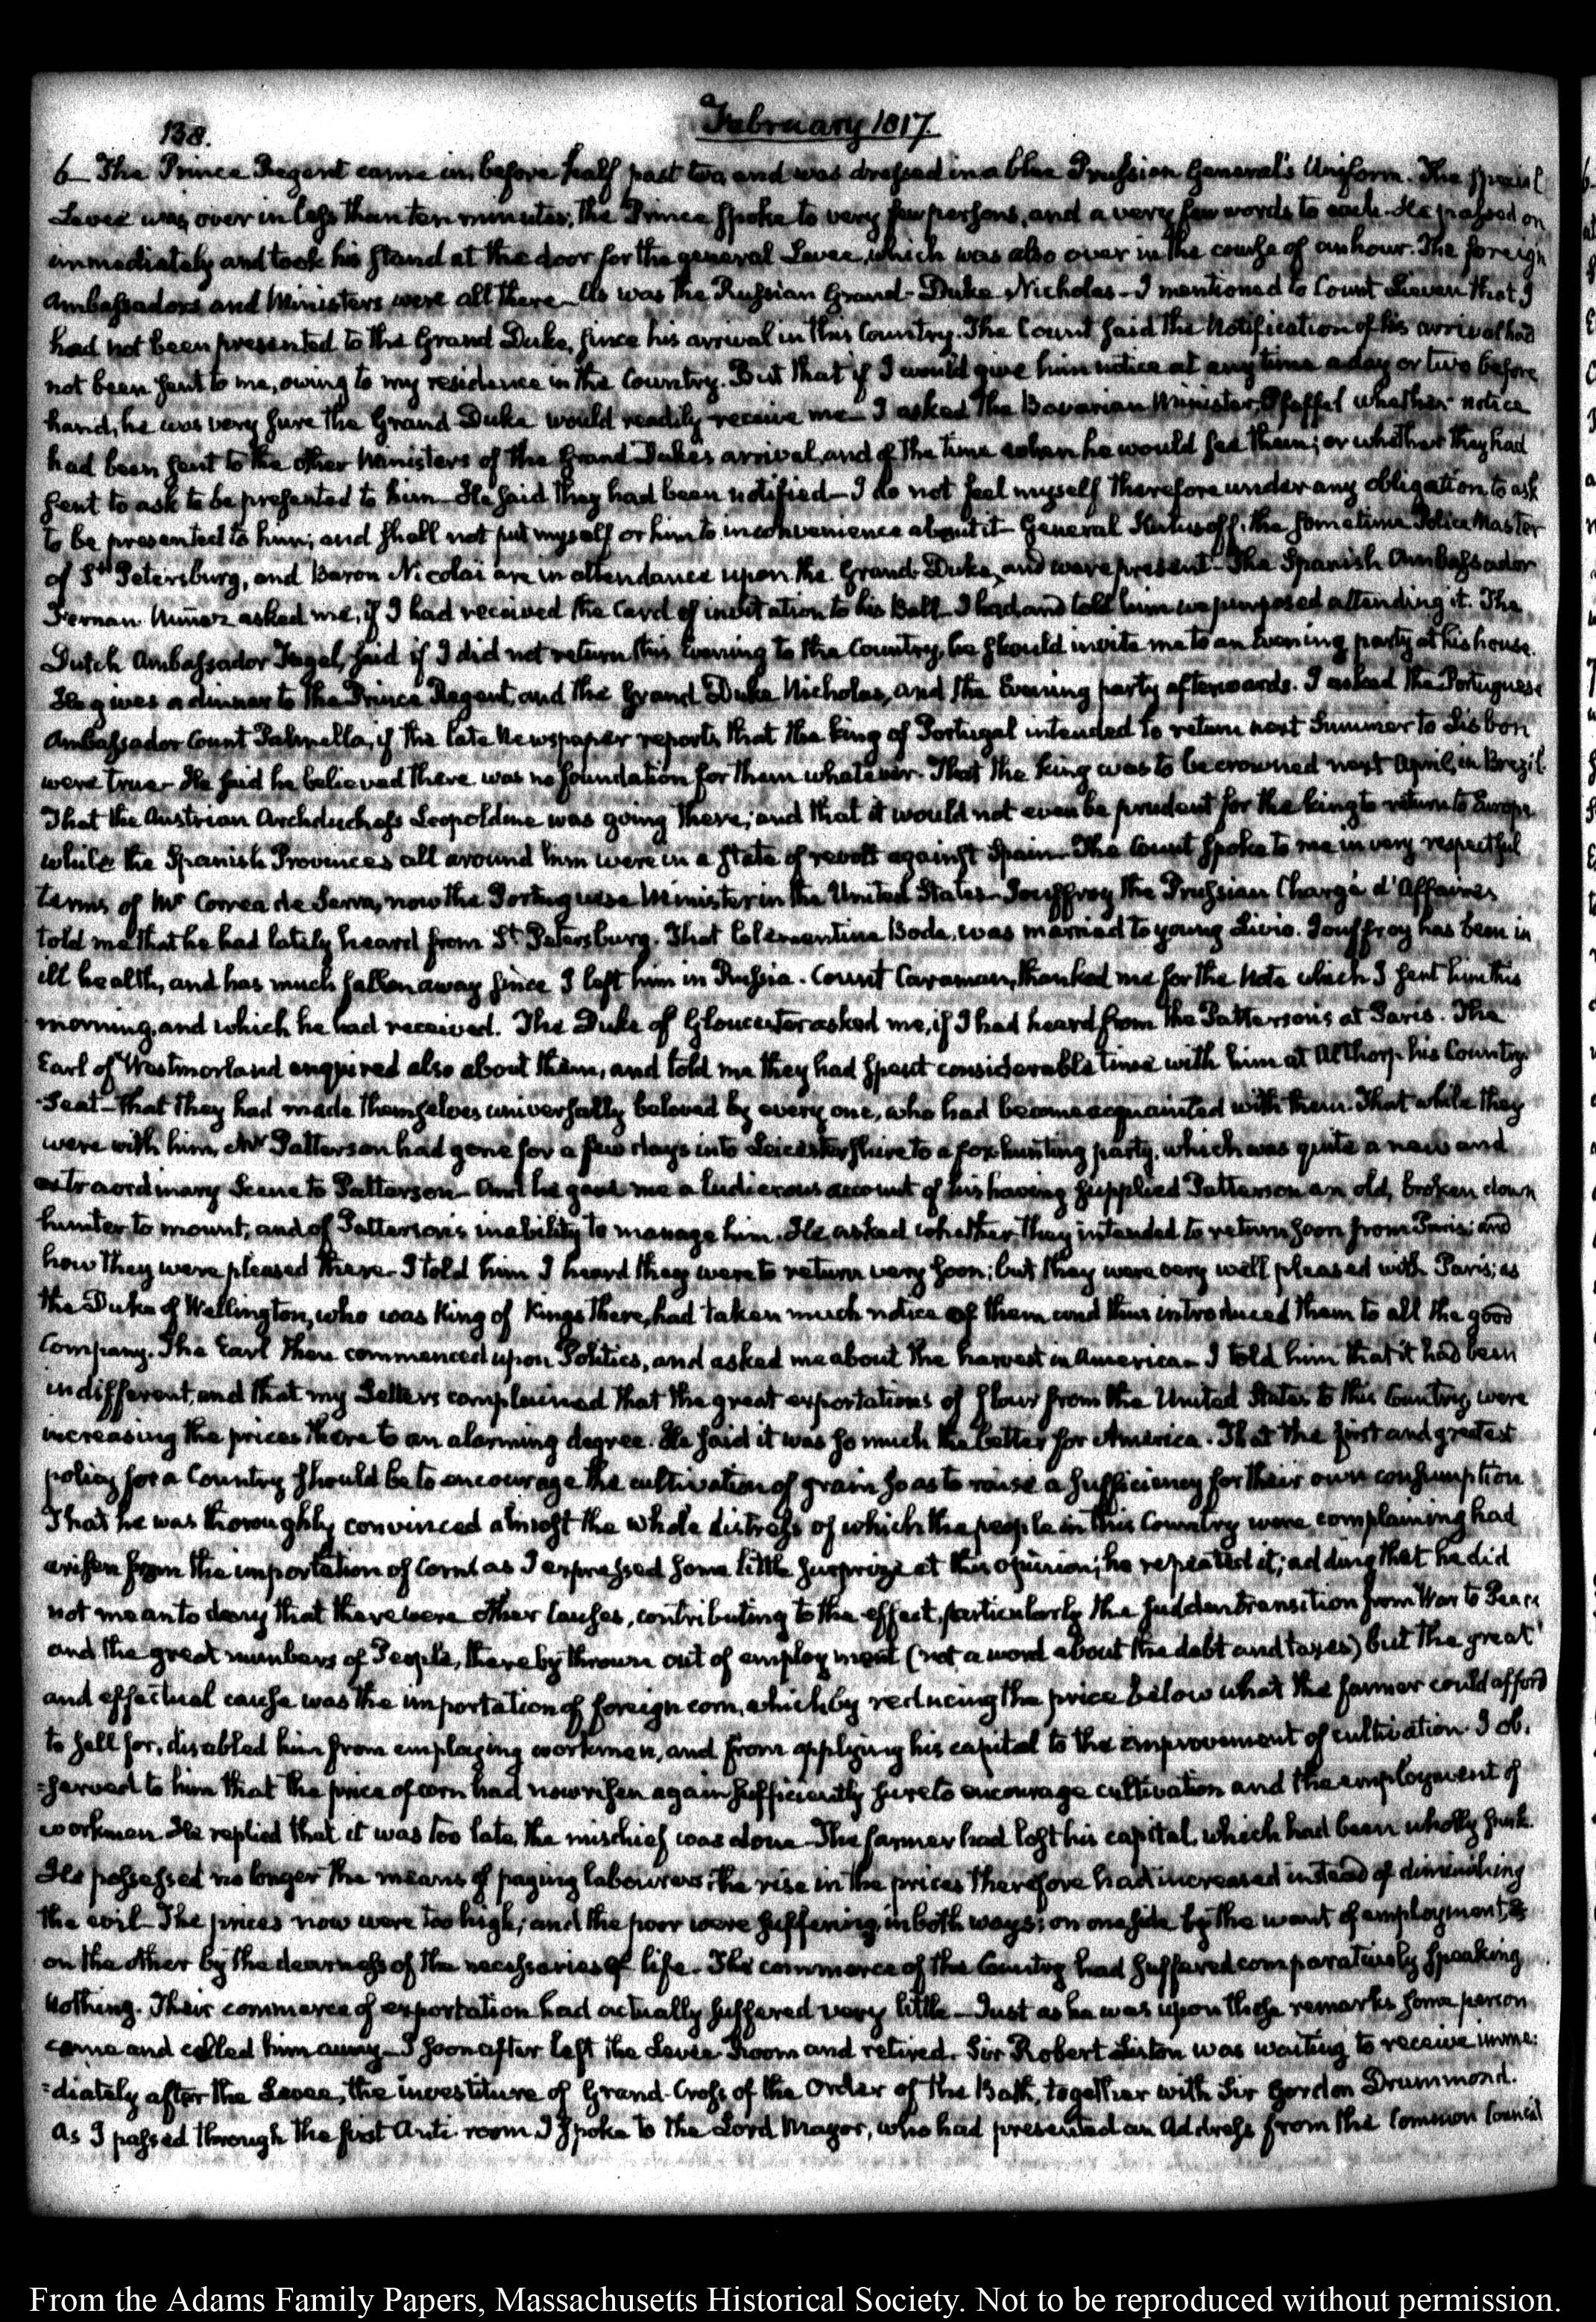 138.
February 1817.
6— The Prince Regent came in before half past two, and was dressed in a blue Prussian General's Uniform. The special
Levee was over in less than ten minutes, the Prince spoke to very few persons, and a very few words to each. He passed on
immediately and took his stand at the door for the general Levee, which was also over in the course of an hour. The foreign
Ambassadors and Ministers were all there—As was the Russian Grand-Duke Nicholas—I mentioned to Count Lieven that I
had not been presented to the Grand Duke, since his arrival in this Country. The Count said the Notification of his arrival had
not been sent to me, owing to my residence in the Country. But that if I would give him notice at any time a day or two before
hand, he was very sure the Grand Duke would readily receive me—I asked the Bavarian Minister, Pfeffel whether notice
had been sent to the other Ministers of the Grand Dukes arrival, and of the time when he would see them; or whether they had
sent to ask to be presented to him—He said they had been notified—I do not feel myself therefore under any obligation to ask
to be presented to him; and shall not put myself or him to inconvenience about it—General Kutusoff, the sometime Police Master
of St. Petersburg, and Baron Nicolai are in attendance upon the Grand-Duke, and were present—The Spanish Ambassador
Fernan Nuñez asked me, if I had received the Card of invitation to his Ball—I had and told him we purposed attending it. The
Dutch Ambassador Fagel, said if I did not return this Evening to the Country, he should invite me to an Evening party at his house.
He gives a dinner to the Prince Regent, and the Grand Duke Nicholas, and the Evening party afterwards. I asked the Portuguese
Ambassador Count Palmella, if the late Newspaper reports that the king of Portugal intended to return next Summer to Lisbon
were true—He said he believed there was no foundation for them whatever. That the king was to be crowned next April, in Brezil.
That the Austrian Archduchess Leopoldine was going there; and that it would not even be prudent for the king to return to Europe
while the Spanish Provinces all around him were in a state of revolt against Spain—The Count spoke to me in very respectful
terms of Mr Correa de Serra, now the Portuguese Minister in the United States—Jouffroy the Prussian Chargé d'Affaires
told me that he had lately heard from St. Petersburg. That Clementina Bode, was married to young Livio. Jouffroy has been in
ill health, and has much fallen away since I left him in Russia. Count Caraman, thanked me for the Note which I sent him this
morning, and which he had received. The Duke of Gloucester asked me, if I had heard from the Patterson's at Paris. The
Earl of Westmorland enquired also about them, and told me they had spent considerable time with him at Althorp his Country
Seat—that they had made themselves universally beloved by every one, who had become acquainted with them. That while they
were with him, Mr Patterson had gone for a few days into Leicestershire to a fox hunting party, which was quite a new and
extraordinary Scene to Patterson—And he gave me a ludicrous account of his having supplied Patterson an old, broken down
hunter to mount, and of Patterson's inability to manage him. He asked whether they intended to return soon from Paris; and
how they were pleased there—I told him I heard they were to return very soon; but they were very well pleased with Paris; as
the Duke of Wellington, who was King of Kings there, had taken much notice of them, and thus introduced them to all the good
Company. The Earl then commenced upon Politics, and asked me about the harvest in America—I told him that it had been
indifferent, and that my Letters complained that the great exportations of flour from the United States to this Country, were
increasing the prices there to an alarming degree. He said it was so much the better for America. That the first and greatest
policy for a Country should be to encourage the cultivation of grain so as to raise a sufficiency for their own consumption
That he was thoroughly convinced almost the whole distress of which the people in this Country were complaining had
arisen from the importation of Corn—as I expressed some little surprize at this opinion; he repeated it; adding that he did
not mean to deny that there were other causes, contributing to the effect, particularly the sudden transition from War to Peace
and the great numbers of People, thereby thrown out of employment (not a word about the debt and taxes) but the great
and effectual cause was the importation of foreign corn, which by reducing the price below what the farmer could afford
to sell for, disabled him from employing workmen, and from applying his capital to the improvement of cultivation. I ob-
=served to him that the price of corn had now risen again sufficiently sure to encourage cultivation and the employment of
workmen. He replied that it was too late, the mischief was done—The farmer had lost his capital, which had been wholly sunk.
He possessed no longer the means of paying labourers. The rise in the prices therefore had increased instead of diminishing
the evil—The prices now were too high; and the poor were suffering, in both ways; on one side by the want of employment, &
on the other by the dearness of the necessaries of life. The commerce of the Country had suffered comparatively speaking
nothing. Their commerce of exportation had actually suffered very little—Just as he was upon these remarks some person
came and called him away—I soon after left the Levee Room and retired. Sir Robert Liston was waiting to receive imme:
=diately after the Levee, the investiture of Grand-Cross of the Order of the Bath, together with Sir Gordon Drummond.
As I passed through the first Anti room I spoke to the Lord Mayor, who had presented an Address from the Common Council
From the Adams Family Papers, Massachusetts Historical Society. Not to be reproduced without permission.